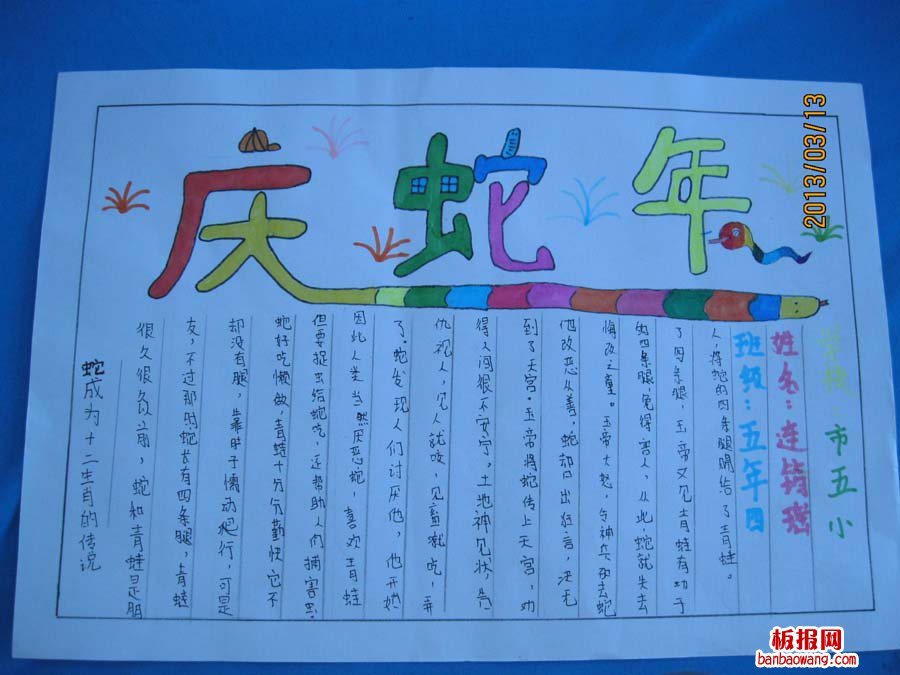 庆蛇年
2013/03/13
蛇成为十二生肖的传说
很久很久以前，蛇和青蛙是朋
友，不过那时蛇长有四条腿，青蛙
却没有腿，靠肚子懦动爬行，可是
蛇好吃懒做，青蛙十分分勤快它不
但要捉虫给蛇吃，还帮助人们捕害虫.
因此人类当然厌恶蛇，喜欢青蛙
了。蛇发现人们讨厌他，他开始
仇视人，见人就咬，见畜就吃，弄
得人间很不安宁。土地神见状，告
到了天宫。玉帝将蛇传上天宫，劝
他改恶从善，蛇却口出狂言，决无
悔改之意。玉帝大怒，令神兵砍去蛇
的四条腿，免得害人，从此，蛇就失去
了四条腿，玉帝又见青蛙有功于
人，将蛇的四条腿赐给了青蛙。
班级：五年四
姓名：连筠
学校：市五小
板报网
banbaowang.com